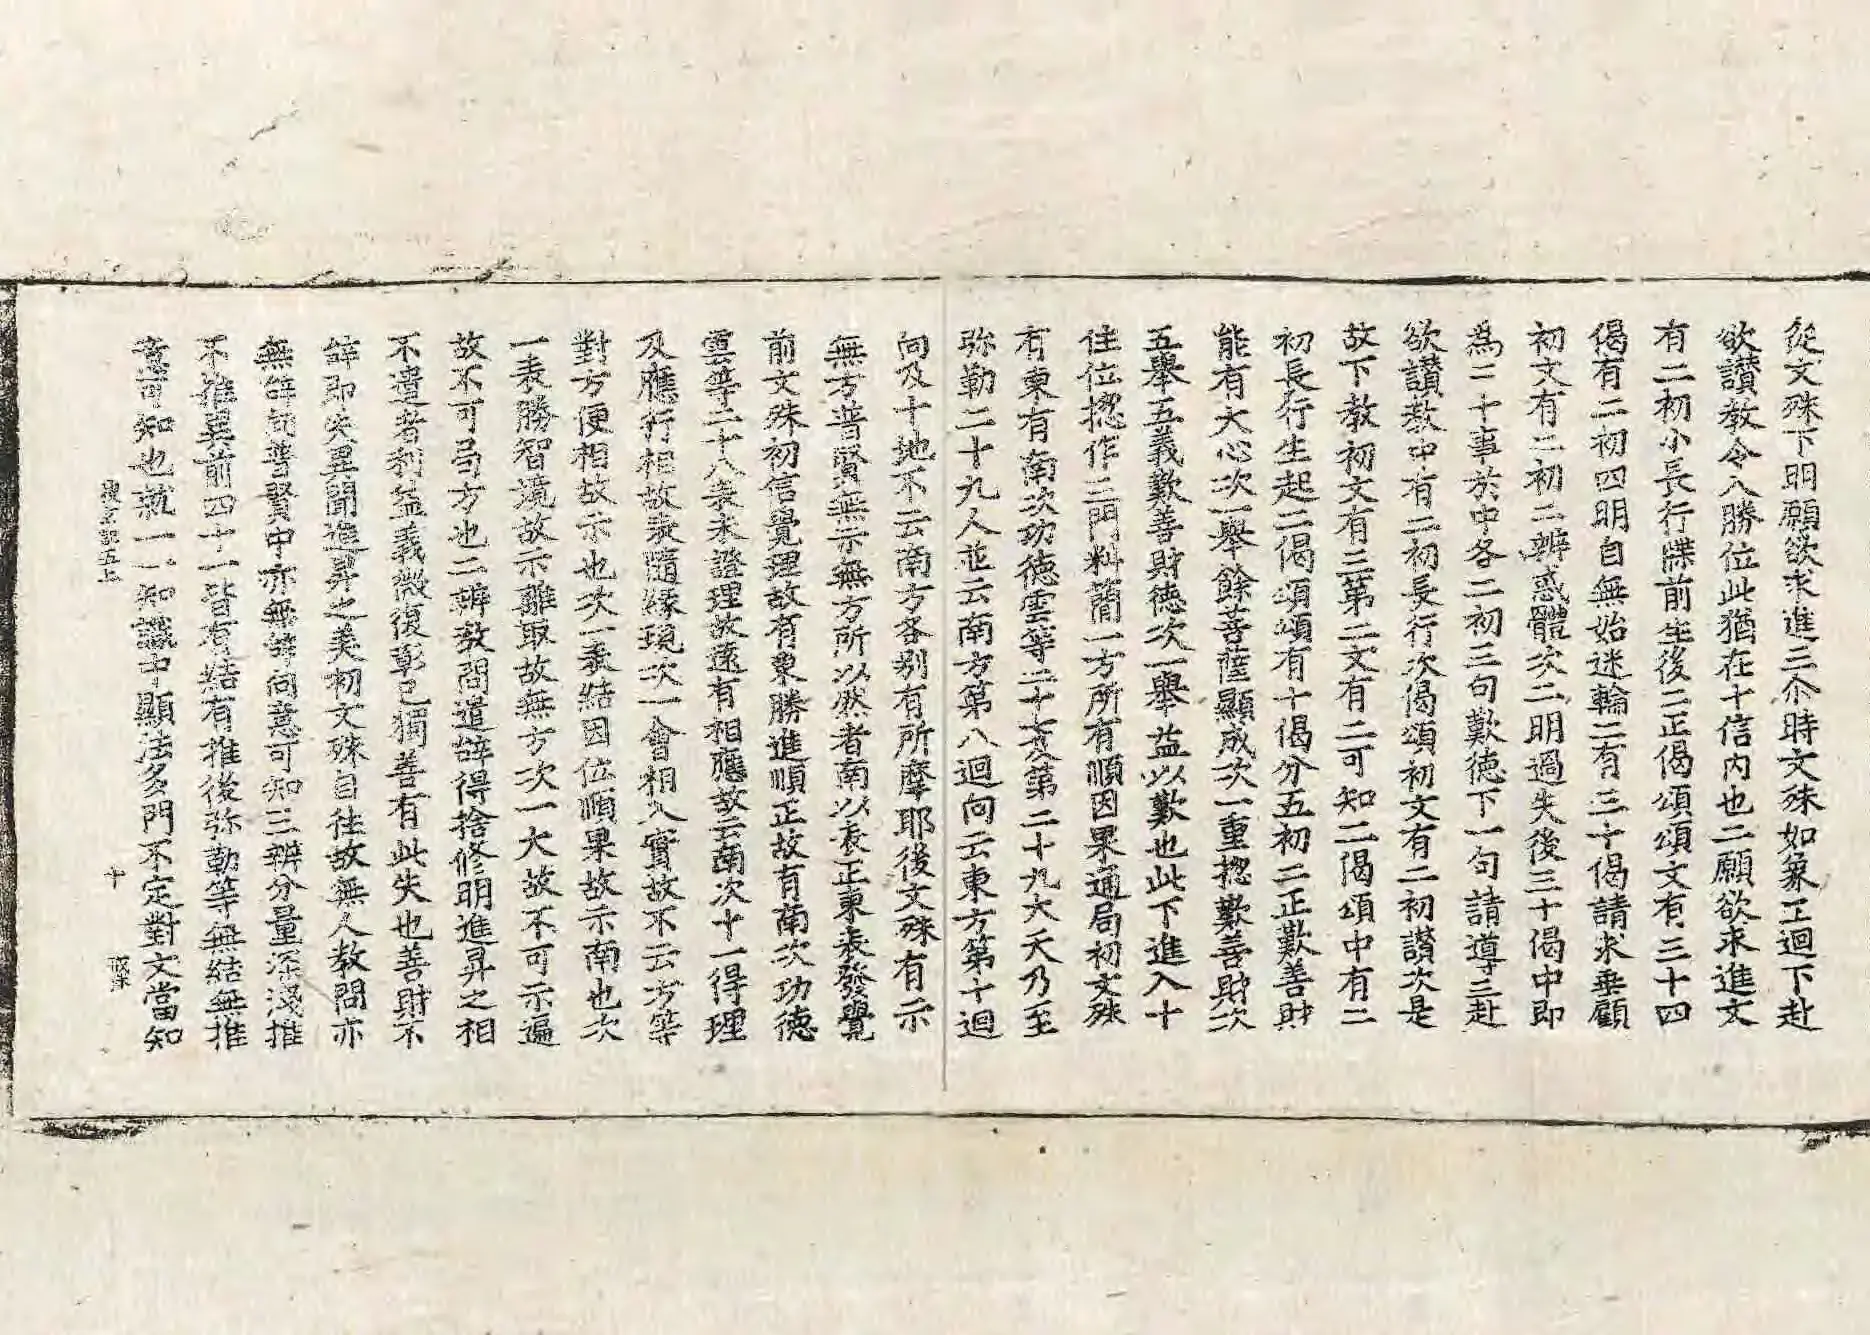 從文殊下明願欲求進三尒時文殊如象王迴下赴
欲讃教令入勝位此猶在十信內也二願欲求進文
有二初小長行牒前生後二正偈頌頌文有三十四
偈有二初四明自無始迷輪二有三十偈請求垂顧
初文有二初二辨惑體次二明過失後三十偈中即
為二十事於中各二初三句歎徳下一句請導三赴
欲讃教中有二初長行次偈頌初文有二初讃次是
故下教初文有三第二文有二可知二偈頌中有二
初長行生起二偈頌頌有十偈分五初二正歎善財
能有大心次一舉餘菩薩顯成次一重揔歎善財次
五舉五義歎善財徳次一舉益以歎也此下進入十
住位揔作三門料蕳一方所有順因果通局初文殊
有東有南次功徳雲等二十 第二十九大天乃至
弥勒二十九人並云南方第八迴向云東方第十迴
向及十地不云南方各别有所摩耶後文殊有示
無方普賢無示無方所以然者南以表正東表發覺
前文殊初信覺理故有東勝進順正故有南次功徳
雲等二十八表未證理故遠有相應故云南次十一得理
及應行相故表隨緣現次一會相入實故不云方等
對方便相故示也次一表結因位順果故示南也次
一表勝智境故示離取故無方次一大故不可示遍
故不可弖方也二辨教問遣辝得捨修明進昇之相
不遣者利益義微復彰已獨善有此失也善財不
辝即失異聞進昇之美初文殊自往故無人教問亦
無辝向普賢中亦無辝向意可知三辨分量深淺推
不推異前四十一皆有結有推後弥勒等無結無推
意可知也就一一知識中顯法多門不定對文當知
搜玄記五上　十